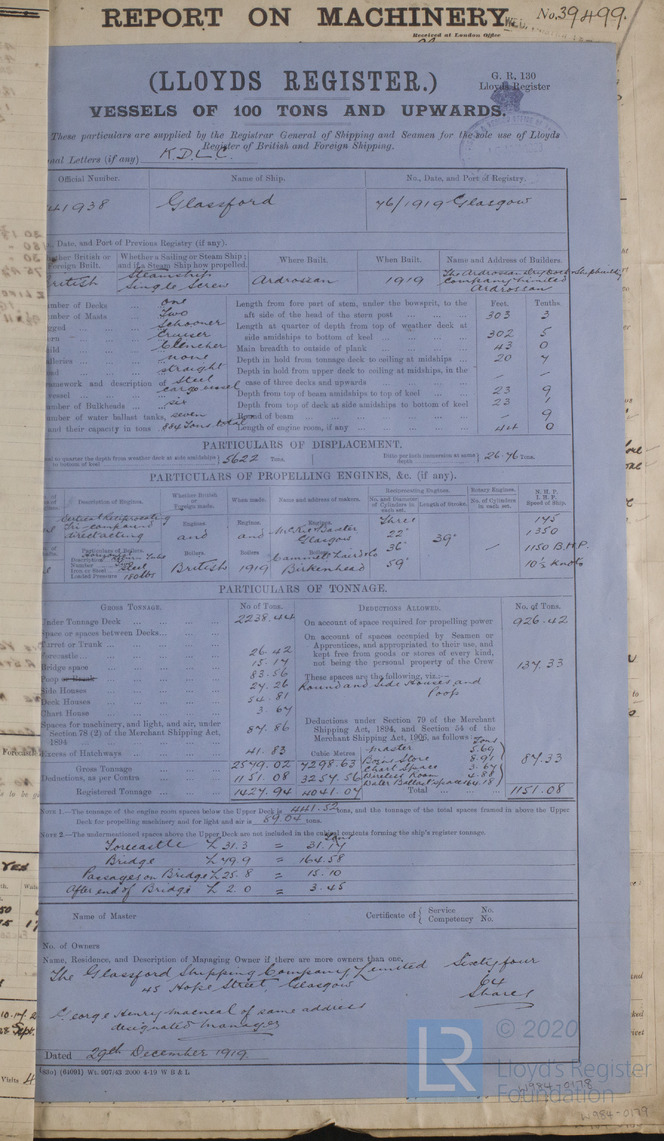 REPORT ON MACHINERY
No. 39499.
Received at London Office
(LLOYDS REGISTER.)
G. R. 130
Lloyds Register
VESSELS OF 100 TONS AND UPWARDS.
These particulars are supplied by the Registrar General of Shipping and Seamen for the sole use of Lloyds
Register of British and Foreign Shipping.
Letters (if any) K.D.L.C.
Official Number. Name of Ship. No., Date, and Port of Registry.
1938 Glassford 76/1919 Glasgow
Date, and Port of Previous Registry (if any).
British or Foreign Built. Whether a Sailing or Steam Ship; and if a Steam Ship how propelled. Where Built. When Built. Name and Address of Builders.
British Steamship Single Screw Ardrossan 1919 The Ardrossan Dry Dock & Shipbuilding Company Limited Ardrossan
Number of Decks ... One
Number of Masts ... Two
Rigged ... Schooner
Stern ... Cruiser
Build ... Clencher
Galleries ... none
Head ... straight
Framework and description of vessel ... Steel cargo vessel
Number of Bulkheads ... six
Number of water ballast tanks, seven
and their capacity in tons 884 Tons total
Feet. Tenths.
Length from fore part of stem, under the bowsprit, to the
aft side of the head of the stern post ... 303 3
Length at quarter of depth from top of weather deck at
side amidships to bottom of keel ... 302 5
Main breadth to outside of plank ... 43 0
Depth in hold from tonnage deck to ceiling at midships ... 20 7
Depth in hold from upper deck to ceiling at midships, in the
case of three decks and upwards ... – –
Depth from top of beam amidships to top of keel ... 23 9
Depth from top of deck at side amidships to bottom of keel 23 1
Round of beam ... – 9
Length of engine room, if any ... 44 0
PARTICULARS OF DISPLACEMENT.
to quarter the depth from weather deck at side amidships to bottom of keel 5622 Tons. Ditto per inch immersion at same depth 26.76 Tons.
PARTICULARS OF PROPELLING ENGINES, &c. (if any).
Description of Engines. Whether British or Foreign made. When made. Name and address of makers. Reciprocating Engines. No. and Diameter of Cylinders in each set. Length of Stroke. Rotary Engines. No. of Cylinders in each set. N.H.P. I.H.P. Speed of Ship.
Vertical Reciprocating Tri-compound direct acting
Engines. and Engines. and Engines. McKie & Baxter Glasgow Three 22" 36" 59" 39" – 175 1350 1150 B.H.P. 10½ knots
Particulars of Boilers.
Description
Number
Iron or Steel Steel
Loaded Pressure 180 lbs
Boilers. British Boilers 1919 Boilers. Cammell Laird & Co Birkenhead
PARTICULARS OF TONNAGE.
GROSS TONNAGE. No. of Tons. DEDUCTIONS ALLOWED. No. of Tons.
Under Tonnage Deck ... 2238.44
Space or spaces between Decks ...
Turret or Trunk ...
Forecastle ... 26.42
Bridge space ... 15.17
Poop ... 83.56
Side Houses ... 27.26
Deck Houses ... 54.81
Chart House ... 3.67
Spaces for machinery, and light, and air, under
Section 78 (2) of the Merchant Shipping Act,
1894 ... 87.86
Excess of Hatchways ... 41.83
Cubic Metres
Gross Tonnage ... 2579.02 7298.63
Deductions, as per Contra ... 1151.08 3257.56
Registered Tonnage ... 1427.94 4041.07
On account of space required for propelling power 926.42
On account of spaces occupied by Seamen or
Apprentices, and appropriated to their use, and
kept free from goods or stores of every kind,
not being the personal property of the Crew 137.33
These spaces are the following, viz.:—
Round and Side Houses and
Poop
Deductions under Section 79 of the Merchant
Shipping Act, 1894, and Section 54 of the
Merchant Shipping Act, 1906, as follows: Tons
Master 5.69
Bosns Store 8.91
Chart Space 3.67
Wireless Room 4.88
Water Ballast space 64.18
87.33
Total ... 1151.08
NOTE 1.—The tonnage of the engine room spaces below the Upper Deck is 441.52 tons, and the tonnage of the total spaces framed in above the Upper
Deck for propelling machinery and for light and air is 89.04 tons.
NOTE 2.—The undermentioned spaces above the Upper Deck are not included in the cubical contents forming the ship's register tonnage.
Tons
Forecastle L 31.3 = 31.17
Bridge L 79.9 = 164.58
Passages on Bridge L 25.8 = 15.10
After end of Bridge L 2.0 = 3.45
Name of Master Certificate of { Service No.
Competency No.
No. of Owners
Name, Residence, and Description of Managing Owner if there are more owners than one,
The Glassford Shipping Company Limited Sixty four
45 Hope Street Glasgow 64
Shares
George Henry Macneal of same address
designated manager
Dated 29th December 1919
(64091) Wt. 907/43 2000 4-19 W B & L
LR © 2020
Lloyd's Register
Foundation
W984-0178
W984-0179